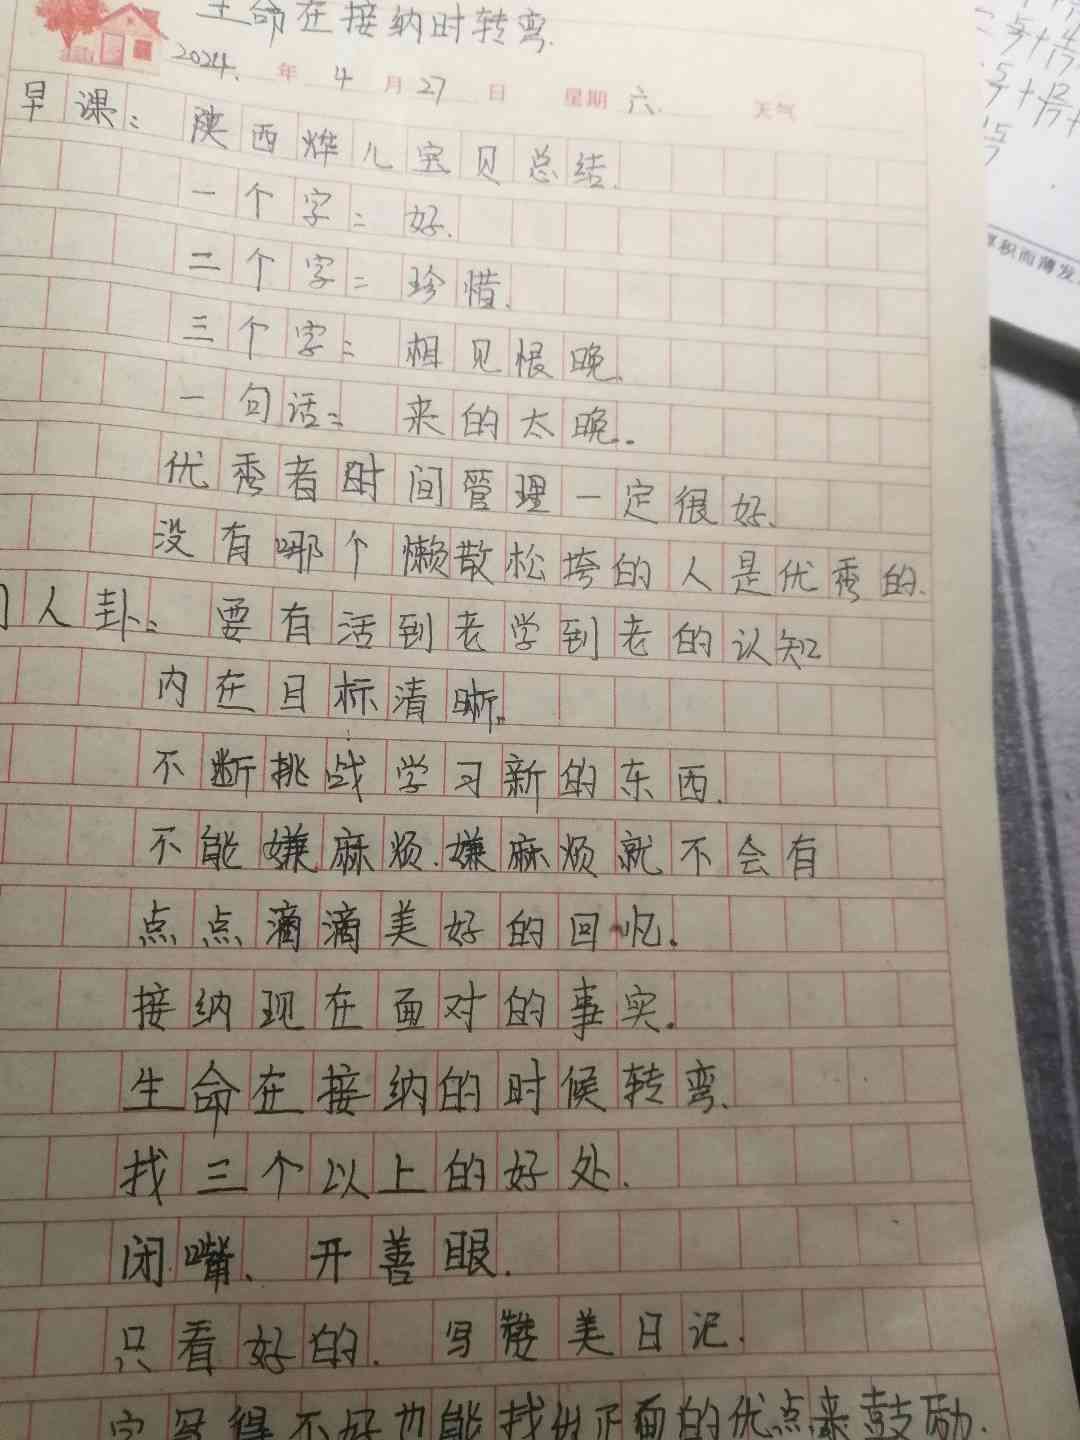 生命在接纳时转弯.
2024. 年 4 月 27 日 星期 六. 天气
早课: 陕西烨儿宝贝总结.
一个字: 好.
二个字: 珍惜.
三个字: 相见恨晚.
一句话: 来的太晚..
优秀者时间管理一定很好.
没有哪个懒散松垮的人是优秀的.
人卦: 要有活到老学到老的认知
内在目标清晰.
不断挑战学习新的东西.
不能嫌麻烦.嫌麻烦就不会有
点点滴滴美好的回忆.
接纳现在面对的事实.
生命在接纳的时候转弯.
找三个以上的好处.
闭嘴、开善眼.
只看好的. 写赞美日记.
字写得不好也能找出正面的优点来鼓励.
厚积而薄发